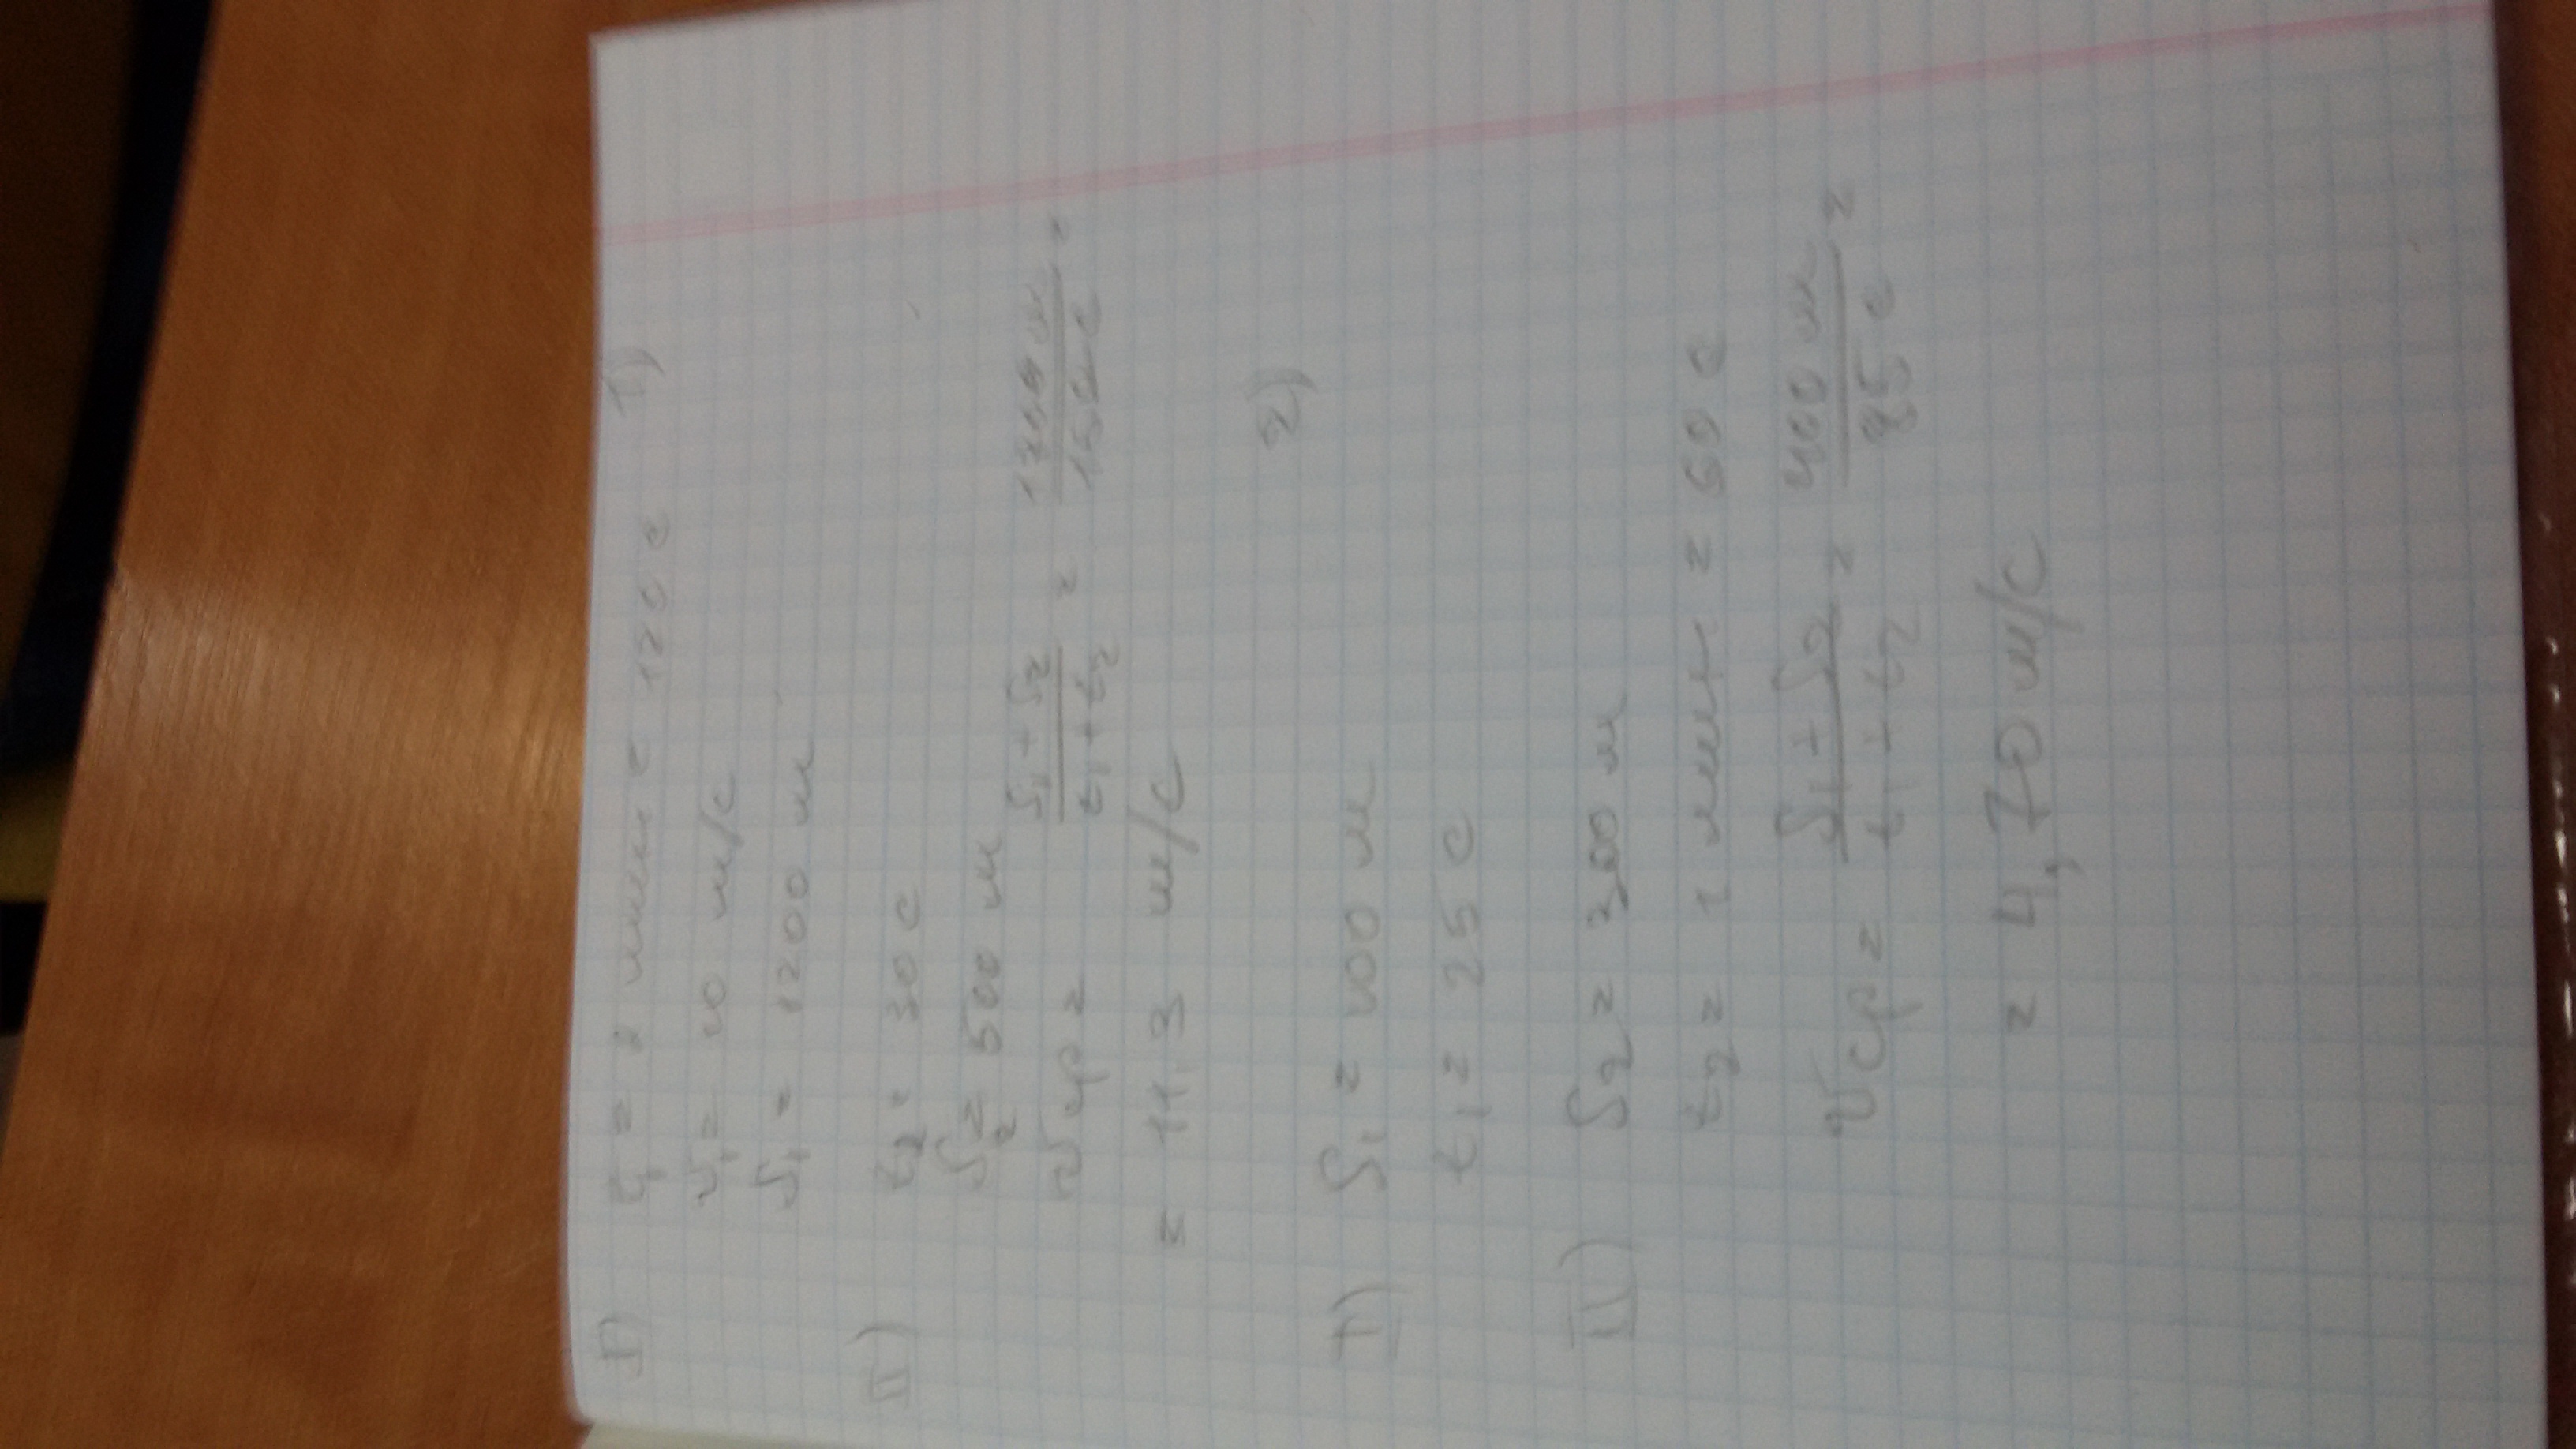 1)
I) t₁ = 2 мин = 120 с
v₁ = 10 м/с
S₁ = 1200 м
II) t₂ = 30 с
S₂ = 500 м
vср = (S₁ + S₂)/(t₁ + t₂) = 1700 м/150 с =
= 11,3 м/с
2)
I) S₁ = 100 м
t₁ = 25 с
II) S₂ = 300 м
t₂ = 1 мин = 60 с
vср = (S₁ + S₂)/(t₁ + t₂) = 400 м/85 с =
= 4,70 м/с